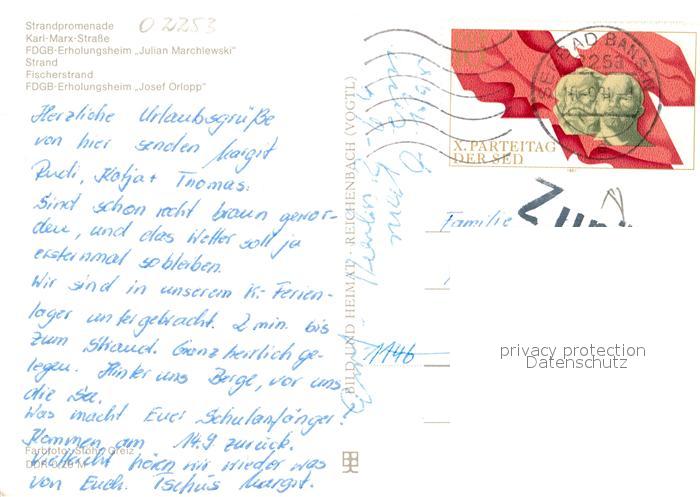 Strandpromenade
Karl-Marx-Straße
FDGB-Erholungsheim „Julian Marchlewski"
Strand
Fischerstrand
FDGB-Erholungsheim „Josef Orlopp"
02253
Herzliche Urlaubsgrüße
von hier senden Margit
Rudi, Katja + Thomas.
Sind schon recht braun gewor-
den, und das Wetter soll ja
ersteinmal so bleiben.
Wir sind in unserem K.-Ferien-
lager untergebracht. 2 min. bis
zum Strand. Ganz herrlich ge-
legen. Hinter uns Berge, vor uns
die See.
Was macht Euer Schulanfänger?
Kommen am 14.9 zurück.
Vielleicht hören wir wieder was
von Euch. Tschüs Margit.
Farbfoto: Stöhr, Greiz
BILD UND HEIMAT · REICHENBACH (VOGTL)
X. PARTEITAG
DER SED
SEEBAD BANSIN
2253
Familie
1146
privacy protection
Datenschutz